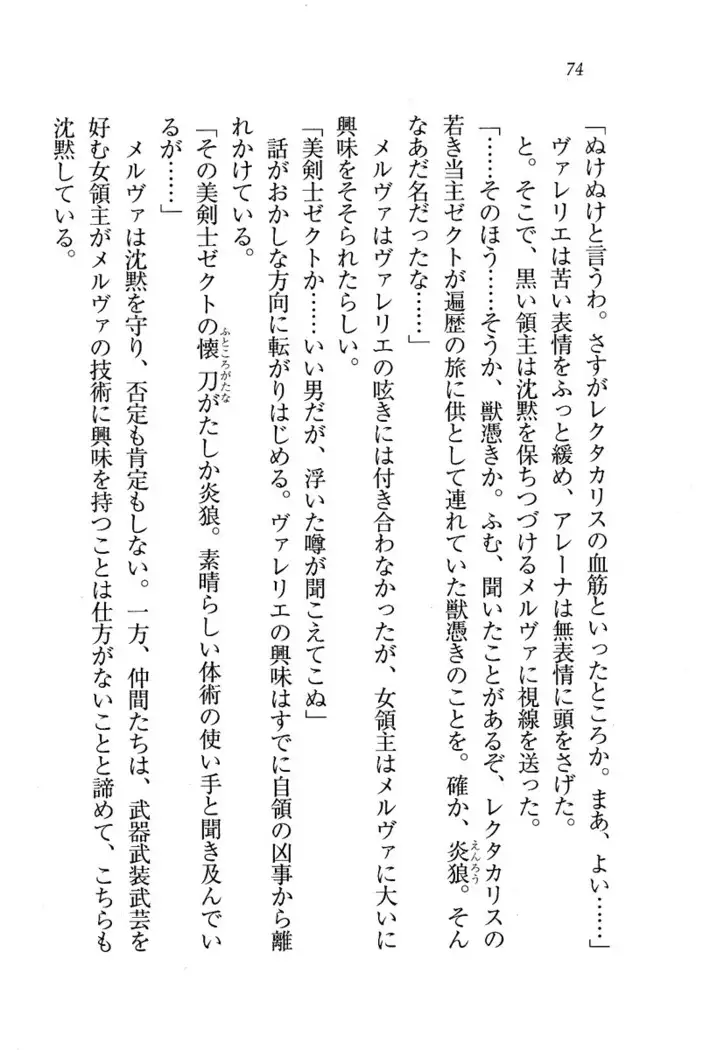 74
「ぬけぬけと言うわ。さすがレクタカリスの血筋といったところか。まあ、よい……」
ヴァレリエは苦い表情をふっと緩め、アレーナは無表情に頭をさげた。
と。そこで、黒い領主は沈黙を保ちつづけるメルヴァに視線を送った。
「……そのほう……そうか、獣憑きか。ふむ、聞いたことがあるぞ、レクタカリスの
若き当主ゼクトが遍歴の旅に供として連れていた獣憑きのことを。確か、炎狼。そん
えんろう
なあだ名だったな……」
メルヴァはヴァレリエの呟きには付き合わなかったが、女領主はメルヴァに大いに
興味をそそられたらしい。
「美剣士ゼクトか……いい男だが、浮いた噂が聞こえてこぬ」
話がおかしな方向に転がりはじめる。ヴァレリエの興味はすでに自領の凶事から離
れかけている。
「その美剣士ゼクトの懐刀がたしか炎狼。素晴らしい体術の使い手と聞き及んでい
ふところがたな
るが……」
メルヴァは沈黙を守り、否定も肯定もしない。一方、仲間たちは、武器武装武芸を
好む女領主がメルヴァの技術に興味を持つことは仕方がないことと諦めて、こちらも
沈黙している。